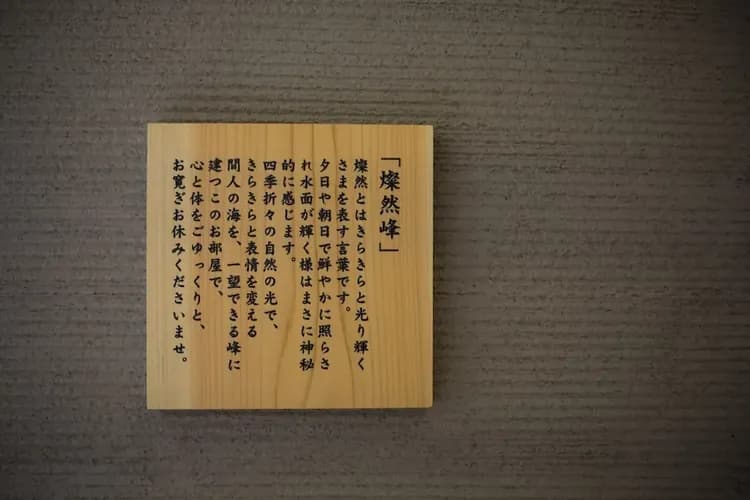 「燦然峰」
燦然とはきらきらと光り輝く
さまを表す言葉です。
夕日や朝日で鮮やかに照らさ
れ水面が輝く様はまさに神秘
的に感じます。
四季折々の自然の光で、
きらきらと表情を変える
間人の海を、一望できる峰に
建つこのお部屋で、
心と体をごゆっくりと、
お寛ぎお休みくださいませ。